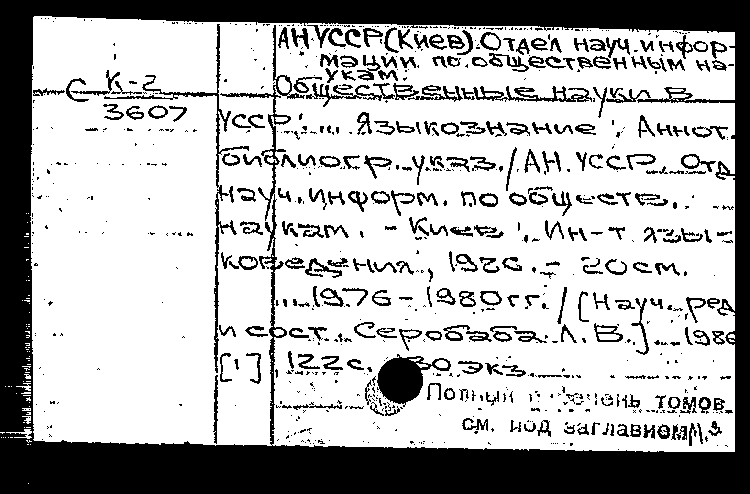 АН УССР (Киев). Отдел науч. инфор-
мации по общественным на-
укам.
С К-2
3607
Общественные науки в
УССР: ... Языкознание : Аннот.
библиогр. указ. / АН УССР, Отд.
науч. информ. по обществ.
наукам. - Киев : Ин-т язы-
коведения, 1986. - 20 см.
... 1976 - 1980 гг. / [Науч. ред.
и сост. Серобаба Л. В.] 1986
[1], 122 с. 30 экз.
Полный перечень томов
см. под заглавием